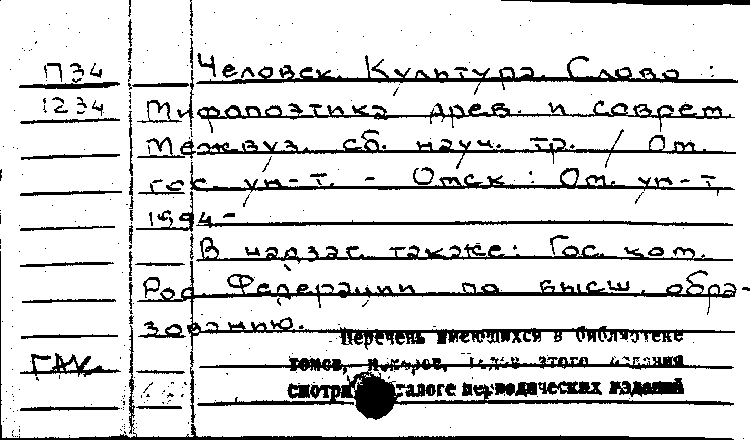 П34 Человек. Культура. Слово :
1234 Мифопоэтика древ. и соврем.
Межвуз. сб. науч. тр. / Ом.
гос. ун-т. - Омск : Ом. ун-т,
1994-
В надзаг. также: Гос. ком.
Рос. Федерации по высш. обра-
зованию.
Перечень имеющихся в библиотеке
томов, номеров, этого издания
смотри каталоге периодических изданий